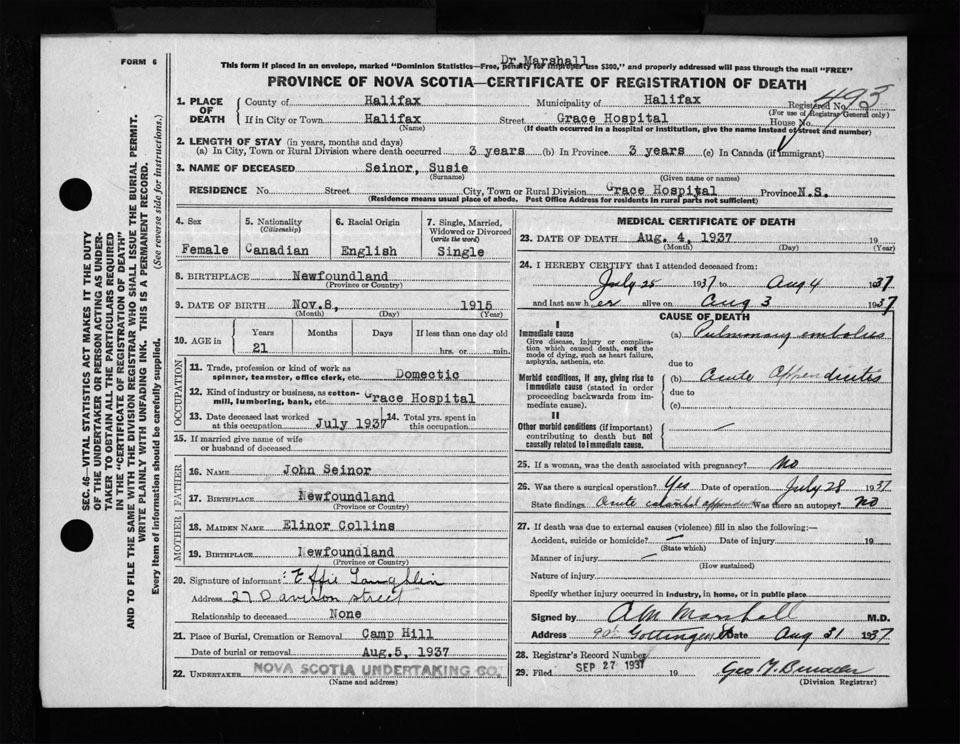 FORM 6
Dr Marshall
This form if placed in an envelope, marked "Dominion Statistics—Free, penalty for improper use $300," and properly addressed will pass through the mail "FREE"
PROVINCE OF NOVA SCOTIA—CERTIFICATE OF REGISTRATION OF DEATH
SEC. 46—VITAL STATISTICS ACT MAKES IT THE DUTY
OF THE UNDERTAKER OR PERSON ACTING AS UNDER-
TAKER TO OBTAIN ALL THE PARTICULARS REQUIRED
IN THE "CERTIFICATE OF REGISTRATION OF DEATH"
AND TO FILE THE SAME WITH THE DIVISION REGISTRAR WHO SHALL ISSUE THE BURIAL PERMIT.
WRITE PLAINLY WITH UNFADING INK. THIS IS A PERMANENT RECORD.
Every item of information should be carefully supplied. (See reverse side for instructions.)
1. PLACE OF DEATH County of Halifax Municipality of Halifax Registered No. 493
(For use of Registrar General only)
If in City or Town Halifax Street Grace Hospital House No.
(Name) (If death occurred in a hospital or institution, give the name instead of street and number)
2. LENGTH OF STAY (in years, months and days)
(a) In City, Town or Rural Division where death occurred 3 years (b) In Province 3 years (c) In Canada (if immigrant)
3. NAME OF DECEASED Seinor, Susie
(Surname) (Given name or names)
RESIDENCE No. Street City, Town or Rural Division Grace Hospital Province N.S.
(Residence means usual place of abode. Post Office Address for residents in rural parts not sufficient)
4. Sex Female
5. Nationality (Citizenship) Canadian
6. Racial Origin English
7. Single, Married, Widowed or Divorced (write the word) Single
8. BIRTHPLACE Newfoundland
(Province or Country)
9. DATE OF BIRTH Nov.8, 1915
(Month) (Day) (Year)
10. AGE in Years Months Days If less than one day old
21 hrs. or min.
OCCUPATION
11. Trade, profession or kind of work as
spinner, teamster, office clerk, etc. Domectic
12. Kind of industry or business, as cotton-
mill, lumbering, bank, etc. Grace Hospital
13. Date deceased last worked at this occupation July 1937
14. Total yrs. spent in this occupation
15. If married give name of wife
or husband of deceased
FATHER
16. NAME John Seinor
17. BIRTHPLACE Newfoundland
(Province or Country)
MOTHER
18. MAIDEN NAME Elinor Collins
19. BIRTHPLACE Newfoundland
(Province or Country)
20. Signature of informant: Effie Laughlin
Address 27 Davison street
Relationship to deceased None
21. Place of Burial, Cremation or Removal Camp Hill
Date of burial or removal Aug.5, 1937
22. UNDERTAKER NOVA SCOTIA UNDERTAKING CO.
(Name and address)
MEDICAL CERTIFICATE OF DEATH
23. DATE OF DEATH Aug. 4, 1937 19
(Month) (Day) (Year)
24. I HEREBY CERTIFY that I attended deceased from:
July 25 1937 to Aug 4 1937
and last saw her alive on Aug 3 1937
CAUSE OF DEATH
I
Immediate cause (a) Pulmonary embolus
Give disease, injury or complica-
tion which caused death, not the
mode of dying, such as heart failure,
asphyxia, asthenia, etc.
due to
Morbid conditions, if any, giving rise to (b) Acute appendicitis
immediate cause (stated in order
proceeding backwards from im-
mediate cause).
due to
(c)
II
Other morbid conditions (if important)
contributing to death but not
causally related to immediate cause.
25. If a woman, was the death associated with pregnancy? No
26. Was there a surgical operation? Yes Date of operation July 28 1937
State findings Acute Was there an autopsy? No
27. If death was due to external causes (violence) fill in also the following:—
Accident, suicide or homicide? — Date of injury 19
(State which)
Manner of injury —
(How sustained)
Nature of injury
Specify whether injury occurred in industry, in home, or in public place
Signed by A M Marshall M.D.
Address Gottingen St Date Aug 31 1937
28. Registrar's Record Number
29. Filed SEP 27 1937 19
(Division Registrar)